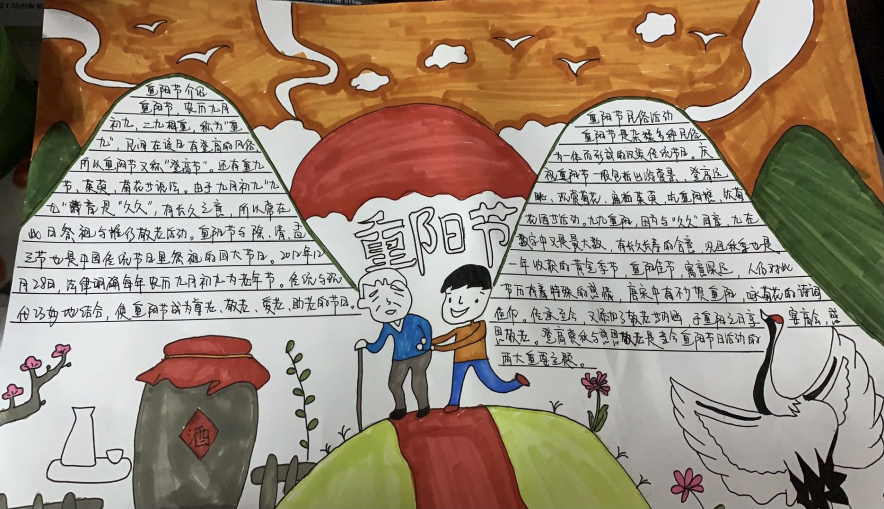 重阳节介绍
重阳节，农历九月
初九，二九相重，称为"重
九"，民间在该日有登高的风俗，
所以重阳节又称"登高节"。还有重九
节、茱萸、菊花节等说法。由于九月初九"九
九"谐音是"久久"，有长久之意，所以常在
此日祭祖与推行敬老活动。重阳节与除、清、盂
三节也是中国传统节日里祭祖的四大节日。2012年12
月28日，法律明确每年农历九月初九为老年节。传统与现
代巧妙地结合，使重阳节成为尊老、敬老、爱老、助老的节日。
重阳节
重阳节民俗活动
重阳节是杂糅多种民俗
为一体而形成的汉族传统节日。庆
祝重阳节一般包括出游赏景、登高远
眺、观赏菊花、遍插茱萸、吃重阳糕、饮菊
花酒等活动。九九重阳，因为与"久久"同音，九在
数字中又是最大数，有长久长寿的含意，况且秋季也是
一年收获的黄金季节，重阳佳节，寓意深远，人们对此
节历来有着特殊的感情，唐宋中有不少贺重阳，咏菊花的诗词
佳作。传承至今，又添加了敬老等内涵，于重阳之日享宴高会，感
恩敬老。登高赏秋与感恩敬老是当今重阳节日活动的
两大重要主题。
酒